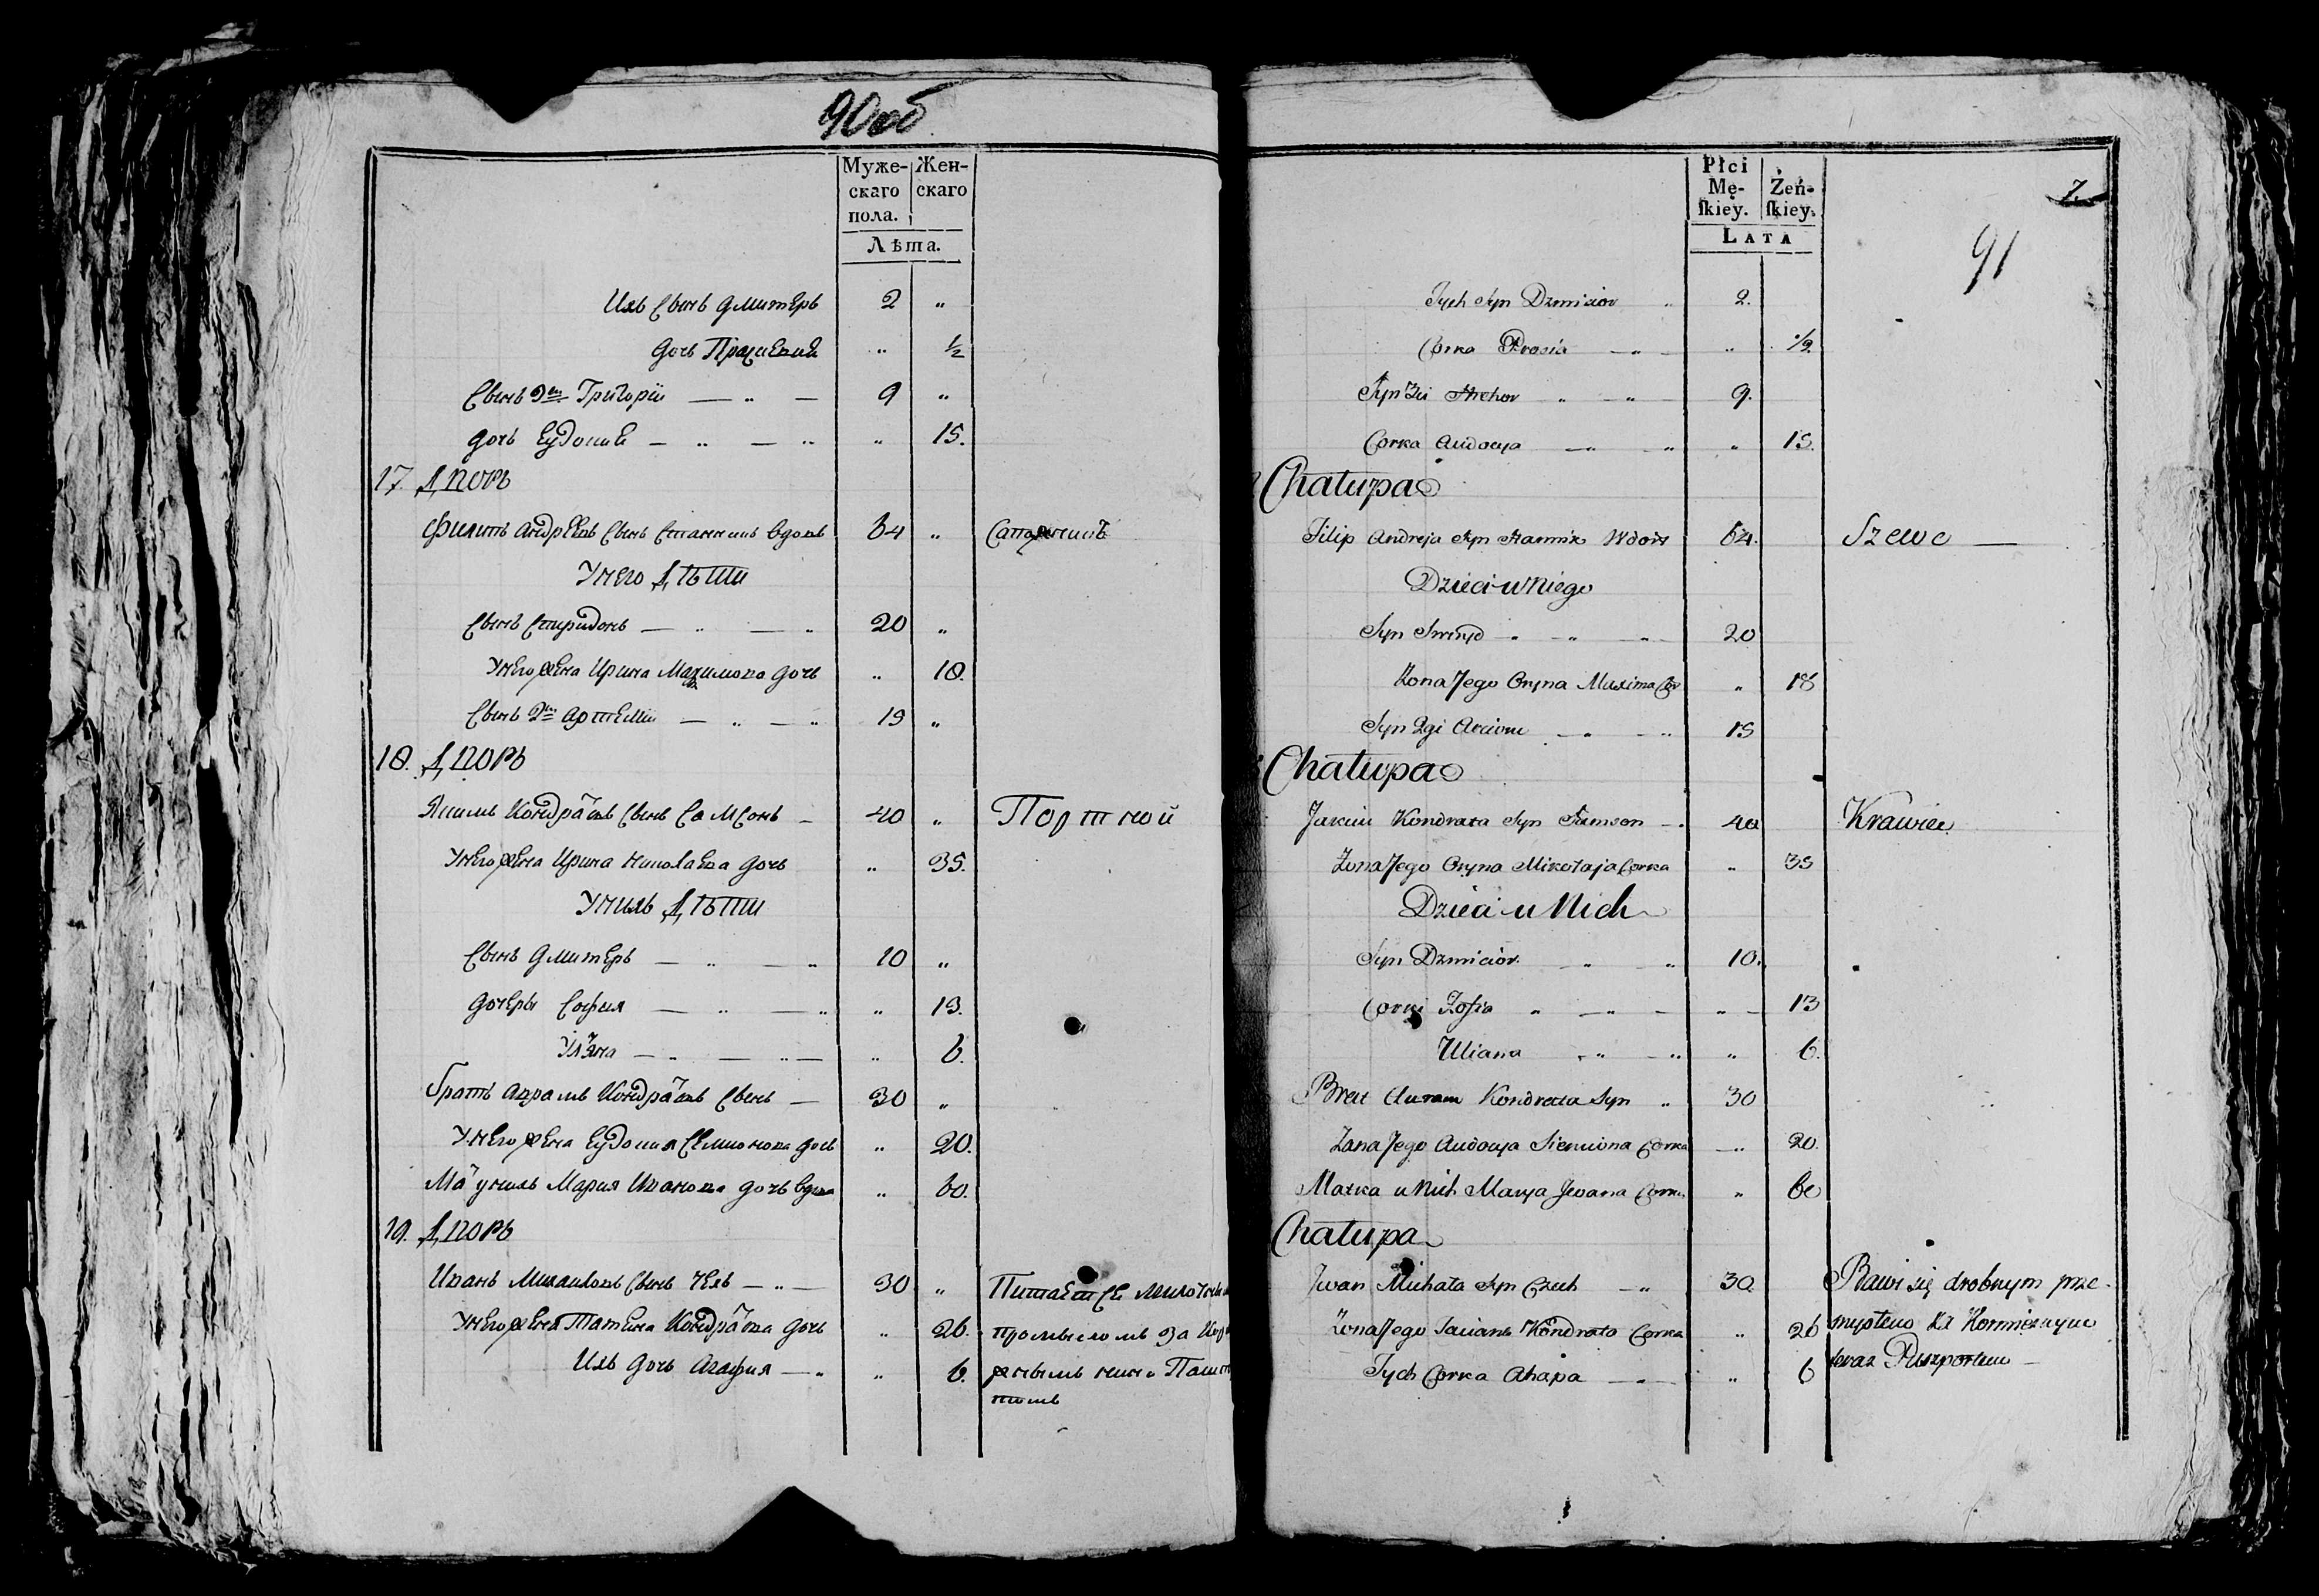 90об
Муже-
скаго
пола.
Жен-
скаго
Лѣта.
Ихъ Сынъ Дмитеръ 2 "
Дочь Праскевия " ½
Сынъ 3й Григорій — " — 9 "
Дочь Еудокия — " — " " 15.
17. Дворъ
Филипъ Андреевъ Сынъ Станкевичъ вдовъ 64 "
Унего Дѣти
Сынъ Спиридонъ — " — " 20 "
Унего жена Ирина Максимова дочь " 18.
Сынъ 2й Артеми — " — " 19 "
18. Дворъ
Якимъ Кондратовъ Сынъ Самсонъ — 40 " Портной
Унего жена Ирина Николаева дочь " 35.
Унихъ Дѣти
Сынъ Дмитеръ — " — " 10 "
Дочери София — " — " " 13.
Уляна — " — " — " 6.
Братъ Аврамъ Кондратовъ Сынъ — 30 "
Унего жена Еудокия Семионова дочь " 20.
Мать унихъ Мария Иванова дочь вдова " 60.
19. Дворъ
Иванъ Михайловъ Сынъ Чехъ — " — 30 " Питается
Унего жена Татьяна Кондратова дочь " 26. промысломъ за
Ихъ дочь Агафия — " " 6.
Płci
Mę-
ſkiey.
Żeń-
ſkiey.
LATA
7.
91
Jych Syn Dzmicior " 2.
Corka Prosia — " — " ½
Syn 3ci " — " 9.
Corka Audocya — " " " 15.
Chałupa
Filip Andreja Syn Wdow 64. Szewc —
Dzieci u Niego
Syn " — " — " 20
Żona Jego Oryna Maxima Cor " 18
Syn 2gi Arciom — " — " 19
Chałupa
Jakim Kondrata Syn Samson — " 40 Krawiec
Żona Jego Oryna Mikołaja Corka " 35
Dzieci u Nich
Syn Dzmicior — " — " 10.
Corki Zofia " — " — " — 13
Uliana " — " " 6.
Brat Auram Kondrata Syn " 30
Żona Jego Audocya Siemiona Corka — " 20.
Matka u Nich Marya Jwana Corka " 60
Chałupa
Jwan Michała Syn Czech — " 30 Bawi się drobnym prze-
Żona Jego Taciana Kondrata Corka " 26 mysłem
Jych Corka Ahapa — " — " 6 Paszportem —